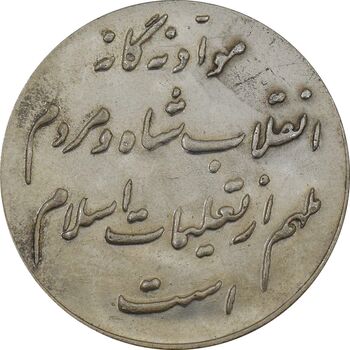 مواد نه گانه
انقلاب شاه و مردم
ملهم از تعلیمات اسلام
است